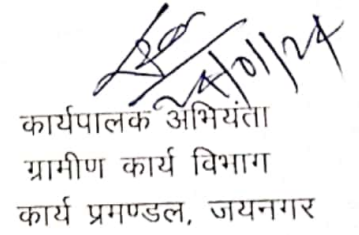 24/01/24
कार्यपालक अभियंता
ग्रामीण कार्य विभाग
कार्य प्रमण्डल, जयनगर